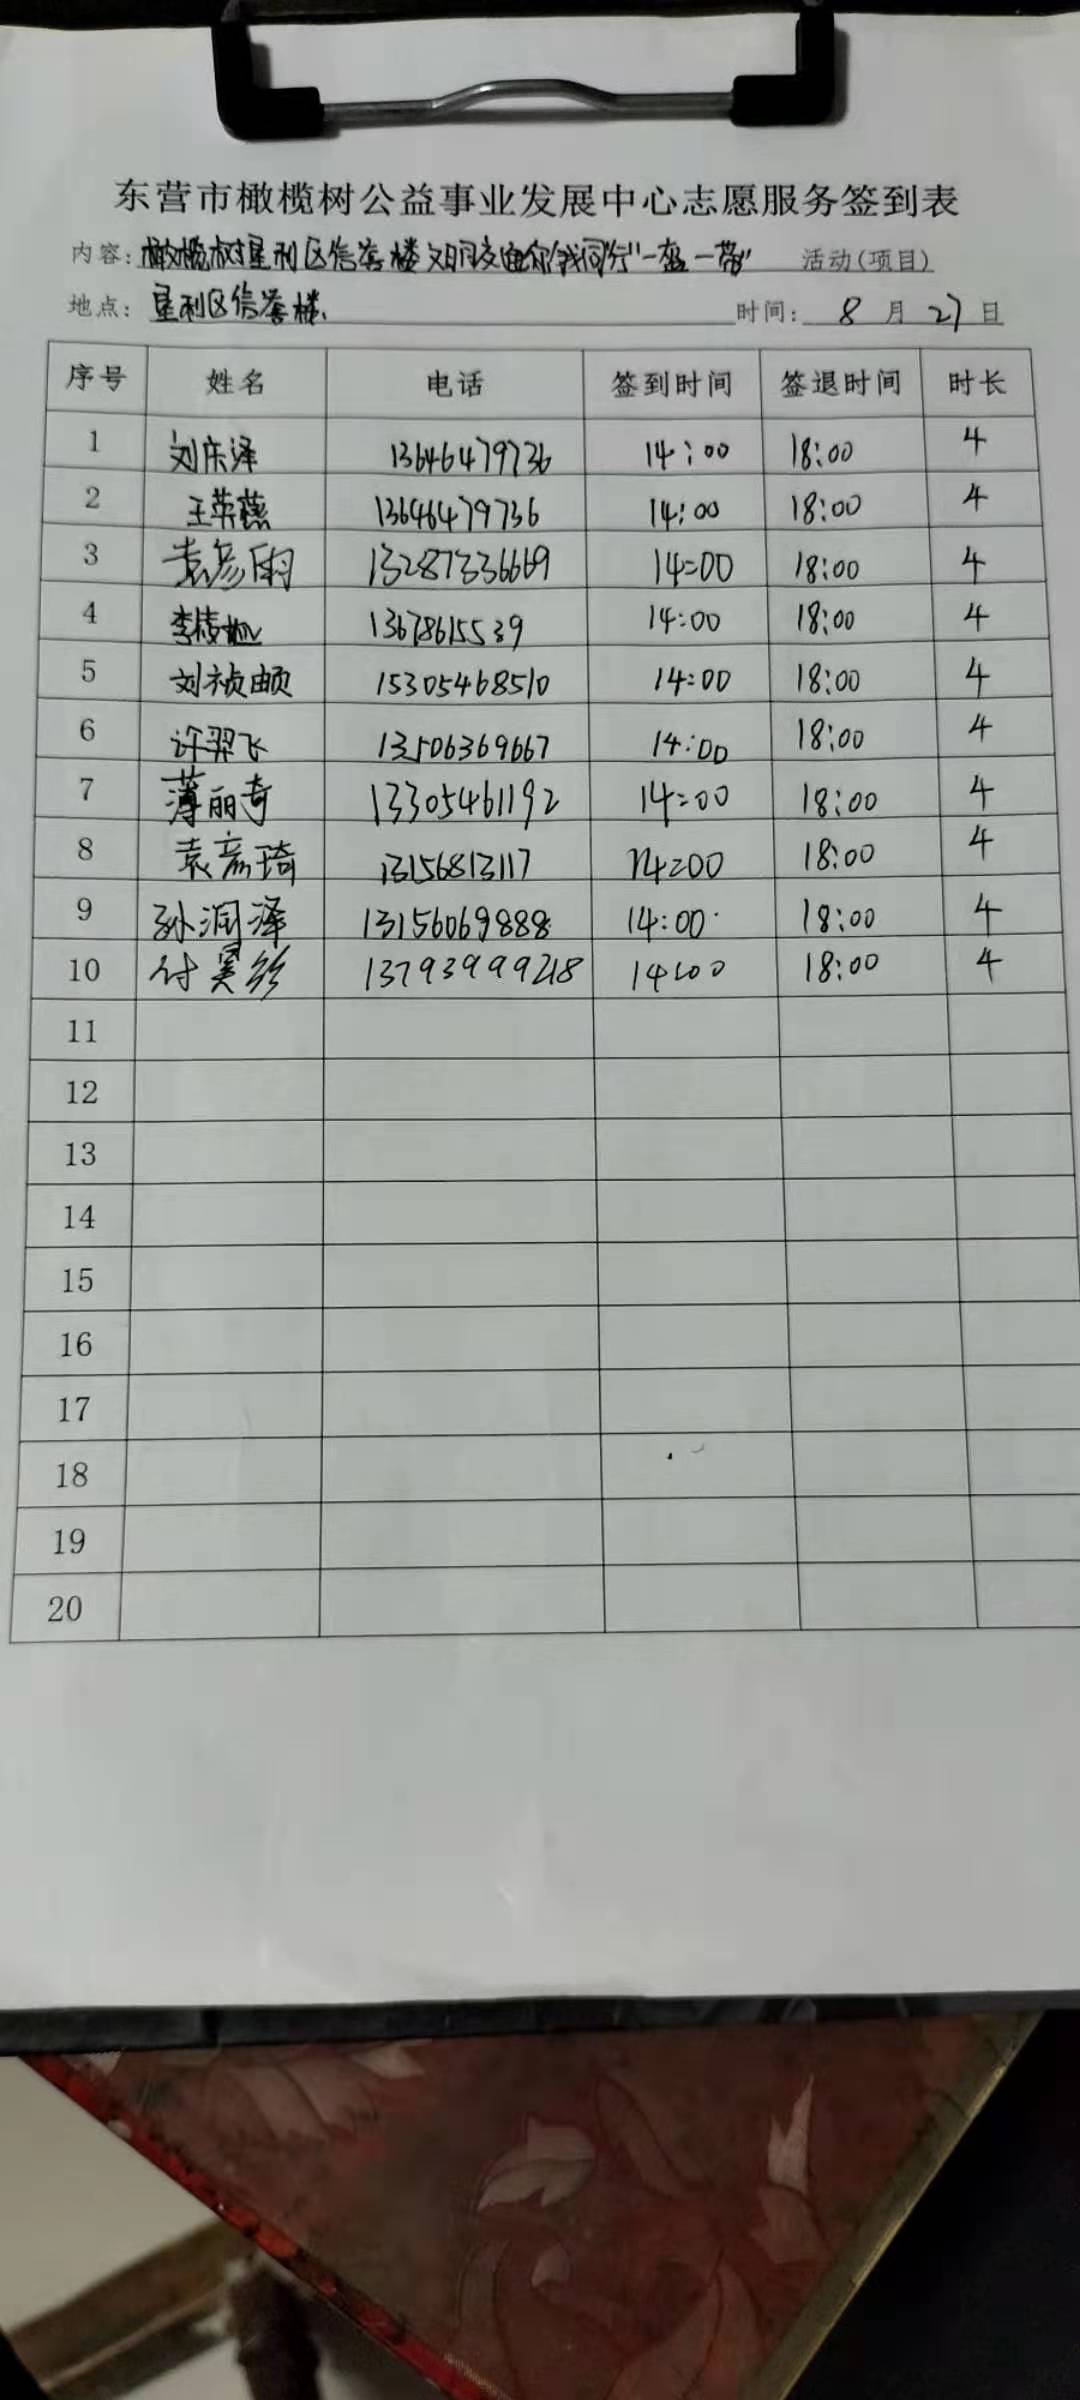 东营市橄榄树公益事业发展中心志愿服务签到表
内容: 橄榄树垦利区信誉楼文明交通你我同行"一盔一带" 活动(项目)
地点: 垦利区信誉楼 时间: 8 月 27 日
序号 姓名 电话 签到时间 签退时间 时长
1 刘庆泽 13646479736 14:00 18:00 4
2 王荣 13646479736 14:00 18:00 4
3 袁彦雨 13287336669 14:00 18:00 4
4 李 13678615539 14:00 18:00 4
5 刘祯 15305468510 14:00 18:00 4
6 许羿飞 13506369667 14:00 18:00 4
7 薄丽奇 13305461192 14:00 18:00 4
8 袁彦琦 13156813117 14:00 18:00 4
9 孙润泽 13156069888 14:00 18:00 4
10 付昊 13793999218 14:00 18:00 4
11
12
13
14
15
16
17
18
19
20